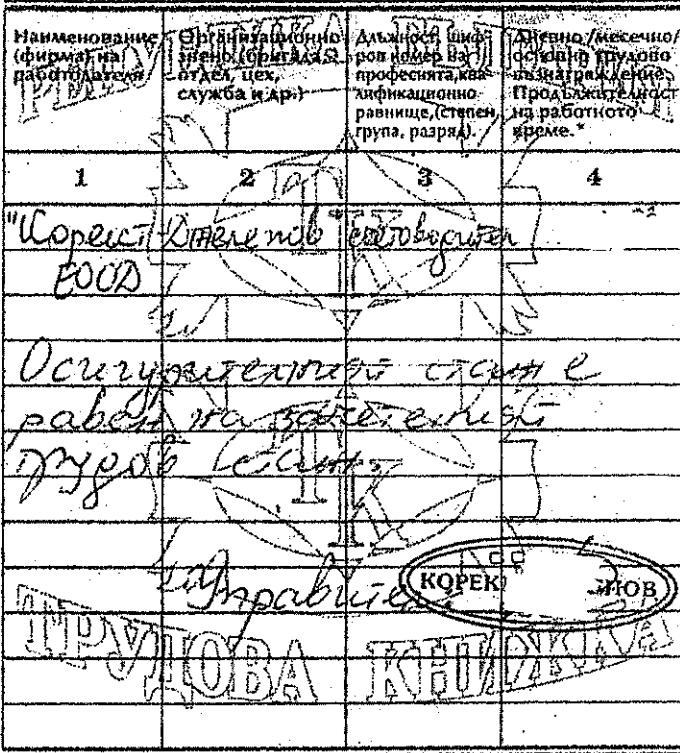 Наименование (фирма) на работодателя
Организационно звено, (бригада, отдел, цех, служба и др.)
Длъжност, шифров номер на професията, квалификационно равнище, (степен, група, разряд).
Дневно /месечно/ основно трудово възнаграждение. Продължителност на работното време.*
1 2 3 4
"Корект-Джелепов счетоводител
ЕООД
Осигурителният стаж е
равен на зачетения
трудов стаж.
Управител
КОРЕК ПОВ
ТРУДОВА КНИЖКА
ТК
ТК